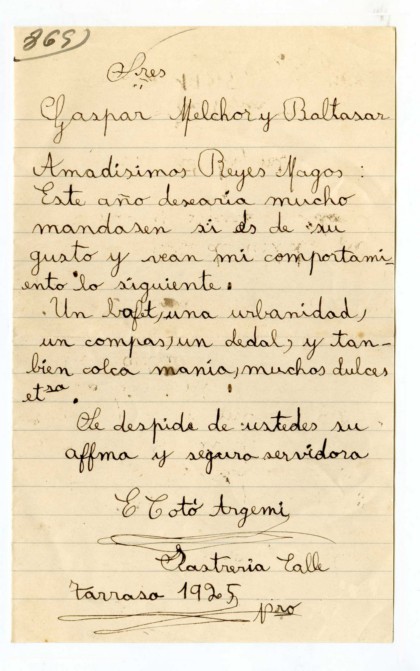 868
Sres
Gaspar Melchor y Baltasar
Amadisimos Reyes Magos :
Este año desearia mucho
mandasen si es de su
gusto y vean mi comportami-
ento lo siguiente.
Un una urbanidad,
un compas, un dedal, y tan-
bien colca mania, muchos dulces
etra.
Se despide de ustedes su
affma y segura servidora
E Totó Argemi
Calle
Tarrasa 1925
pro